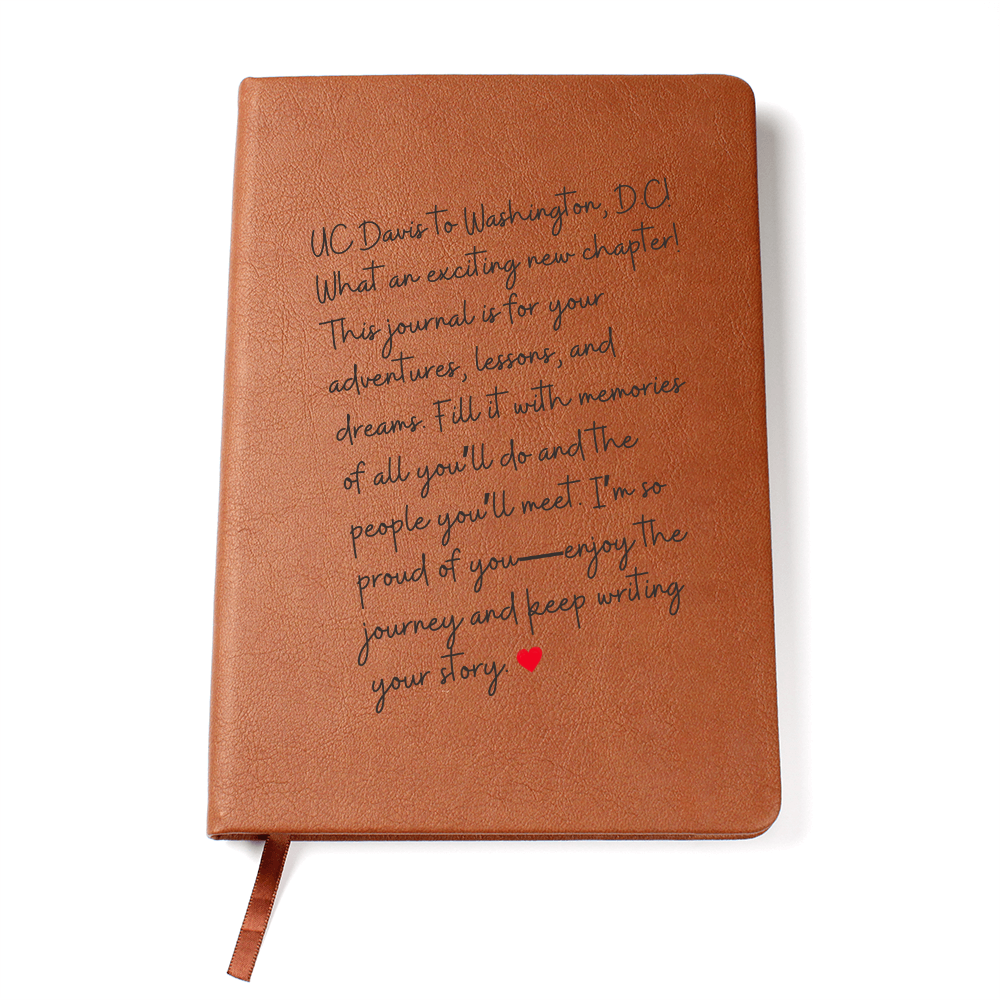 UC Davis to Washington, D.C!
What an exciting new chapter!
This journal is for your
adventures, lessons, and
dreams. Fill it with memories
of all you'll do and the
people you'll meet. I'm so
proud of you—enjoy the
journey and keep writing
your story. ❤